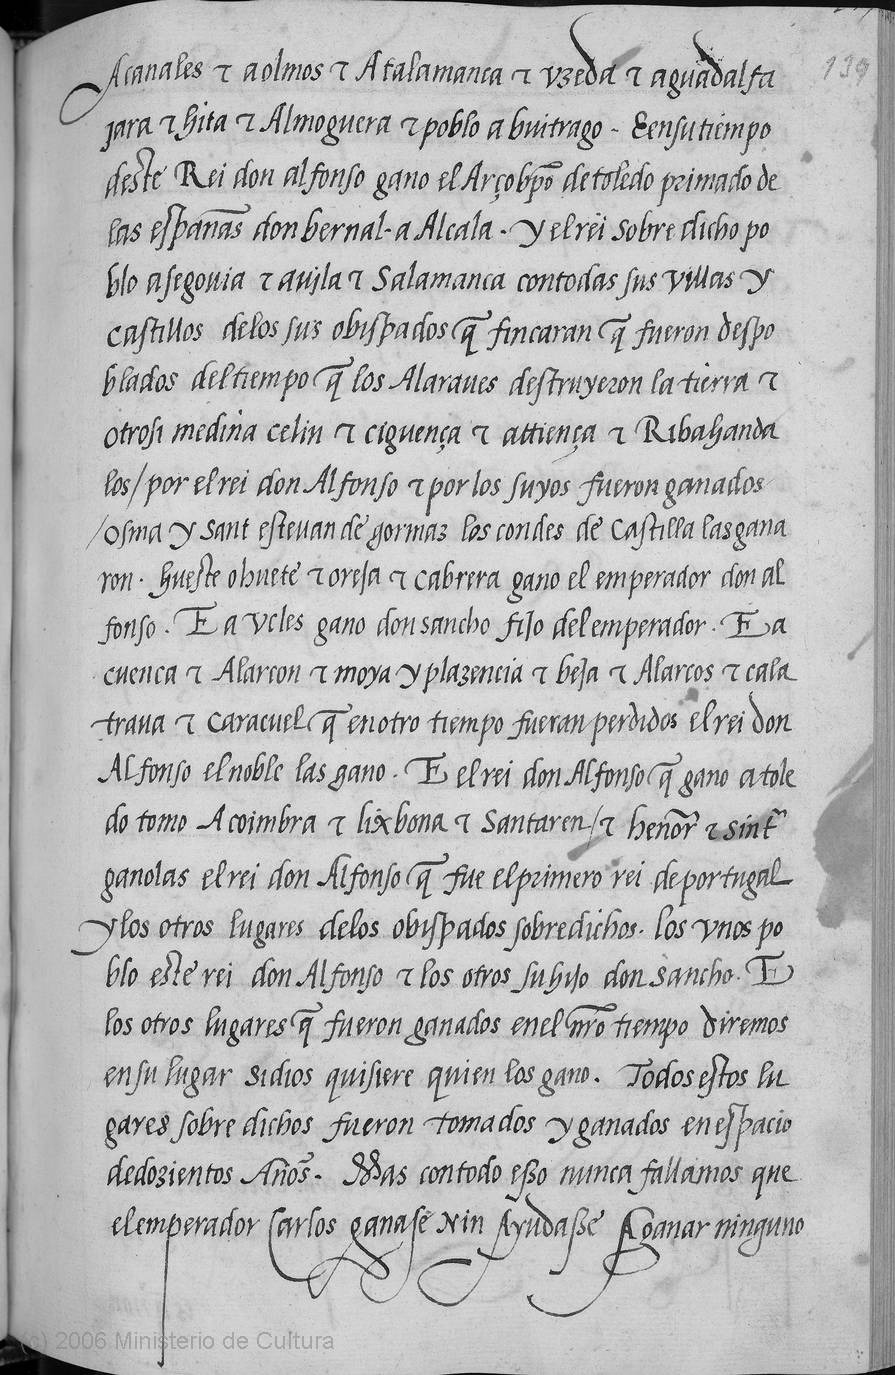 139
Acanales τ aolmos τ Atalamanca τ vzeda τ aguadalfa
jara τ hita τ Almoguera τ poblo a buitrago - E ensu tiempo
deste Rei don alfonso gano el Arçobpō de toledo primado de
las españas don bernal. a Alcala . y el rei sobre dicho po
blo asegouia τ auila τ Salamanca contodas sus villas y
castillos delos sus obispados q̄ fincaran q̄ fueron despo
blados del tiempo q̄ los Alaraues destruyeron la tierra τ
otrosi medina celin τ ciguença τ attiença τ Ribahanda
los / por el rei don Alfonso τ por los suyos fueron ganados
/ osma y sant esteuan de gormaz los condes de Castilla las gana
ron . hueste ohuete τ oreja τ cabrera gano el emperador don al
fonso . E a vcles gano don sancho fijo del emperador . E a
cuenca τ Alarcon τ moya y plazencia τ beja τ Alarcos τ cala
traua τ caracuel q̄ en otro tiempo fueran perdidos el rei don
Alfonso el noble las gano . E el rei don Alfonso q̄ gano atole
do tomo Acoimbra τ lixbona τ Santaren / τ henōr τ sint̄
ganolas el rei don Alfonso q̄ fue el primero rei de portugal
y los otros lugares delos obispados sobredichos . los vnos po
blo este rei don Alfonso τ los otros su hijo don sancho . E
los otros lugares q̄ fueron ganados enel nr̄o tiempo diremos
en su lugar sidios quisiere quien los gano . Todos estos lu
gares sobre dichos fueron tomados y ganados en espacio
dedozientos Años . Mas contodo esso nunca fallamos que
el emperador Carlos ganase Nin Ayudasse Aganar ninguno
(c) 2006 Ministerio de Cultura